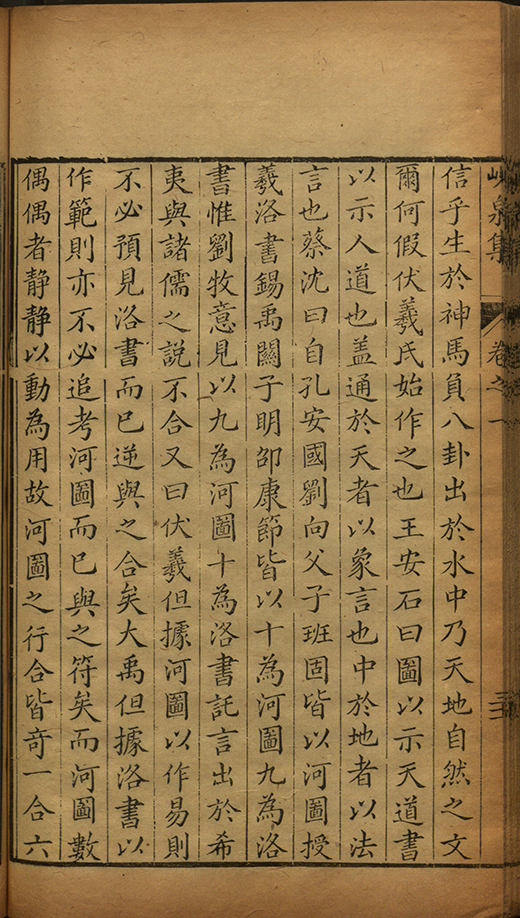 峴泉集
卷之一
信乎生於神馬負八卦出於水中乃天地自然之文
爾何假伏羲氏始作之也王安石曰圖以示天道書
以示人道也盖通於天者以象言也中於地者以法
言也蔡沈曰自孔安國劉向父子班固皆以河圖授
羲洛書錫禹關子明邵康節皆以十為河圖九為洛
書惟劉牧意見以九為河圖十為洛書託言出於希
夷與諸儒之說不合又曰伏羲但據河圖以作易則
不必預見洛書而已逆與之合矣大禹但據洛書以
作範則亦不必追考河圖而已與之符矣而河圖數
偶偶者静静以動為用故河圖之行合皆竒一合六